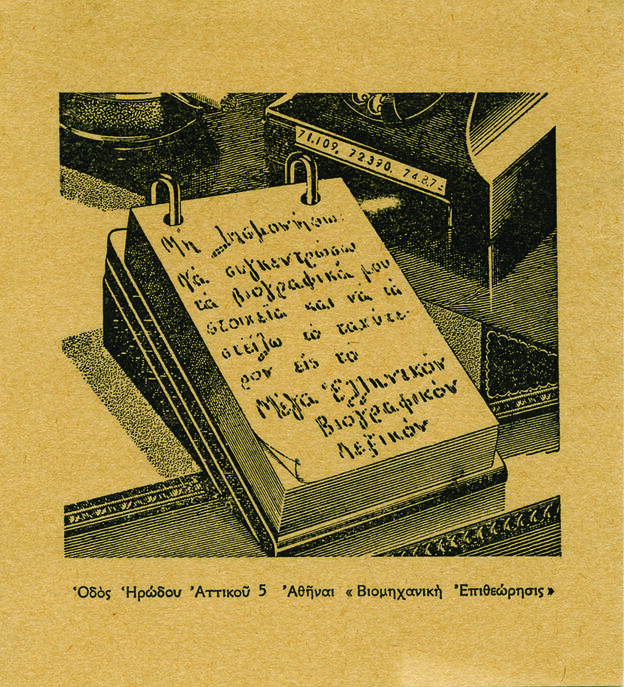 71.109, 72390, 74.87
Μὴ λησμονήσω:
Νά συγκεντρώσω
τά βιογραφικά μου
στοιχεῖα και νά τά
στείλω τό ταχύτε-
ρον εἰς τό
Μέγα Ἑλληνικόν
Βιογραφικόν
Λεξικόν
Ὁδὸς Ἡρώδου Ἀττικοῦ 5 Ἀθῆναι «Βιομηχανικὴ Ἐπιθεώρησις»